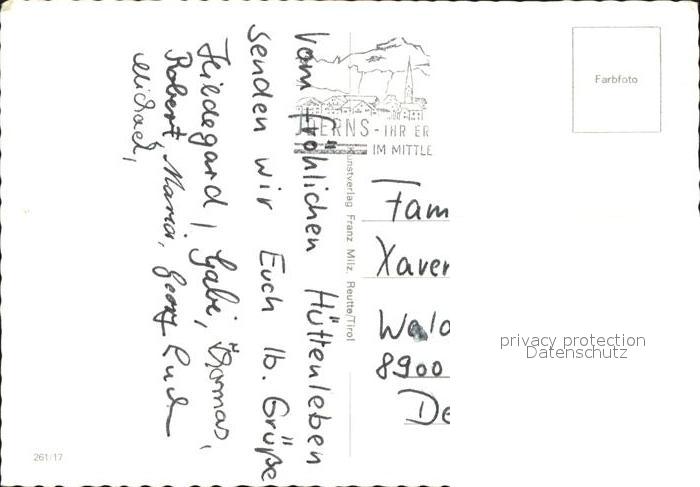 Vom fröhlichen Hüttenleben
senden wir Euch lb. Grüße
Hildegard, Gabi, Thomas,
Robert, Maria, Georg
Michael,
ERNS - IHR ER
IM MITTLE
Kunstverlag Franz Milz, Reutte/Tirol
Farbfoto
Fam
Xaver
Wald
8900
De
privacy protection
Datenschutz
261/17